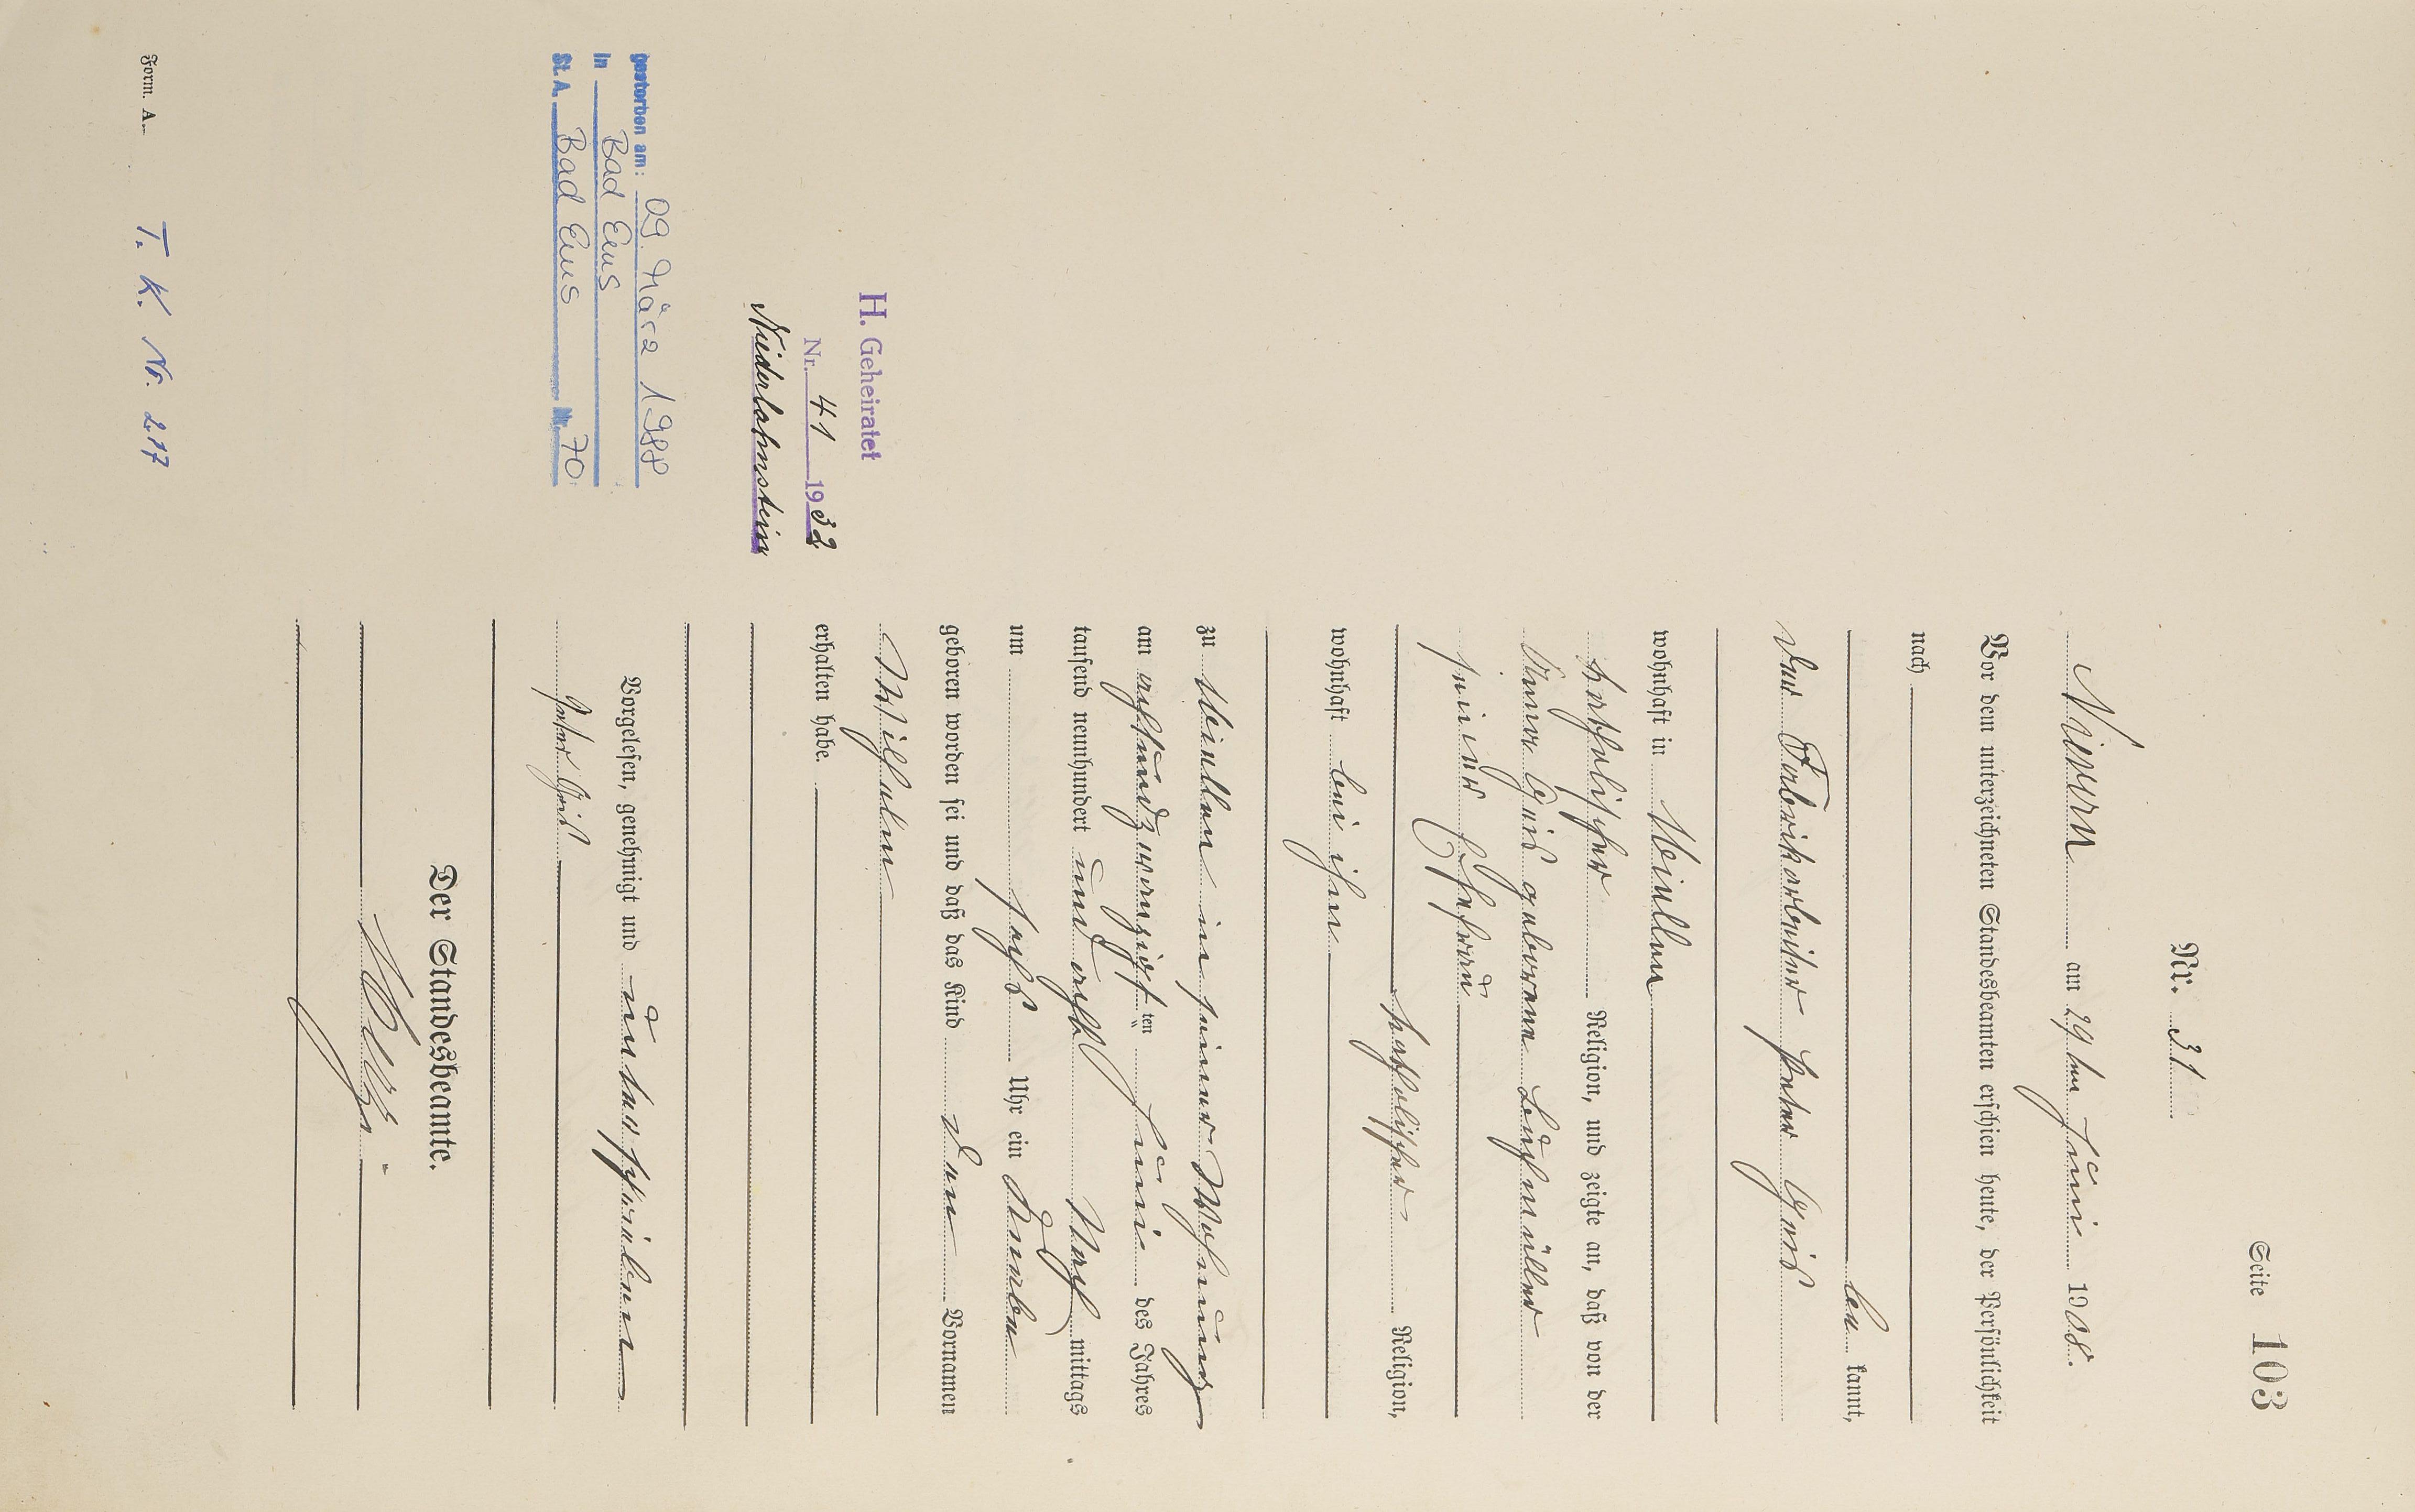 Seite 103
Nr. 31
Nievern am 29ten Juni 1908.
Vor dem unterzeichneten Standesbeamten erschien heute, der Persönlichkeit
nach
be kannt,
der Fabrikarbeiter Peter Geis
wohnhaft in Miellen
katholischer Religion, und zeigte an, daß von der
Anna Geis geborene
seiner Ehefrau
katholischer Religion,
wohnhaft bei ihm
zu Miellen in seiner Wohnung
am achtundzwanzigsten Juni des Jahres
tausend neunhundert und acht Nach mittags
um sechs Uhr ein Knabe
geboren worden sei und daß das Kind den Vornamen
Wilhelm
erhalten habe.
Vorgelesen, genehmigt und unterschrieben
Peter Geis
Der Standesbeamte.
H. Geheiratet
Nr. 41 1932
Niederlahnstein
gestorben am: 09. März 1988
in Bad Ems
St. A. Bad Ems Nr. 70
Form. A. T. K. Nr. 217